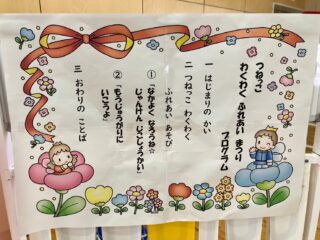 つねっこ
わくわく ふれあい まつり
プログラム
一 はじまりの かい
二 つねっこ わくわく
ふれあい あそび
①「なかよく なろうね☆
じゃんけん じっこうかい」
②「もうじゅうがりに
いこうよ」
三 おわりの ことば